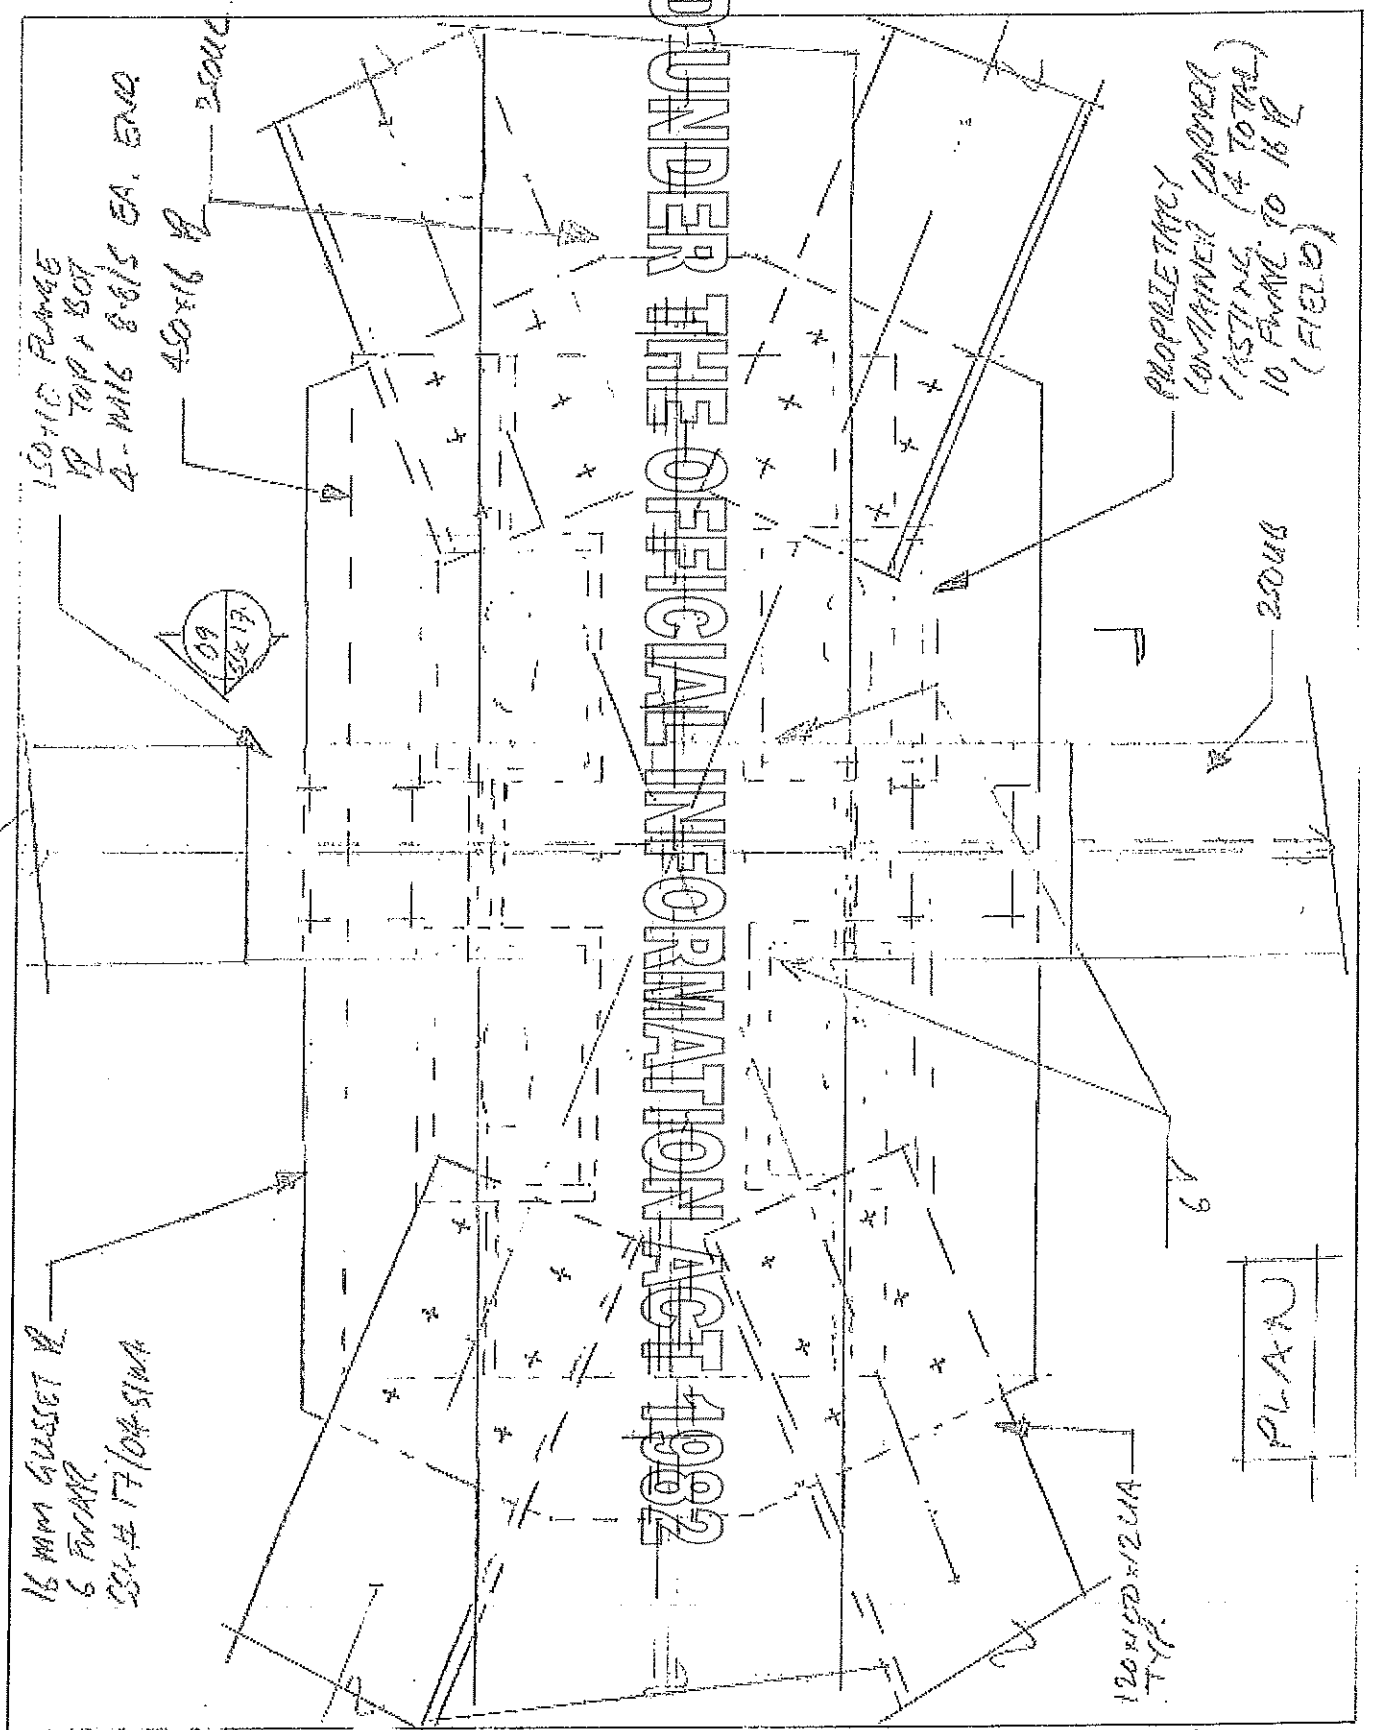 D UNDER THE OFFICIAL INFORMATION ACT 1982
16 MM GUSSET PL
6 FWAR
150x10 FLANGE
PL TOP & BOT
4-M16 8.8/S EA. END
450x16 PL
250UC
09
PROPRIETARY
CONTAINER CORNER
CASTING (4 TOTAL)
10 FWAR TO 16 PL
(FIELD)
250UB
6
120x120x12 UA
TYP.
PLAN